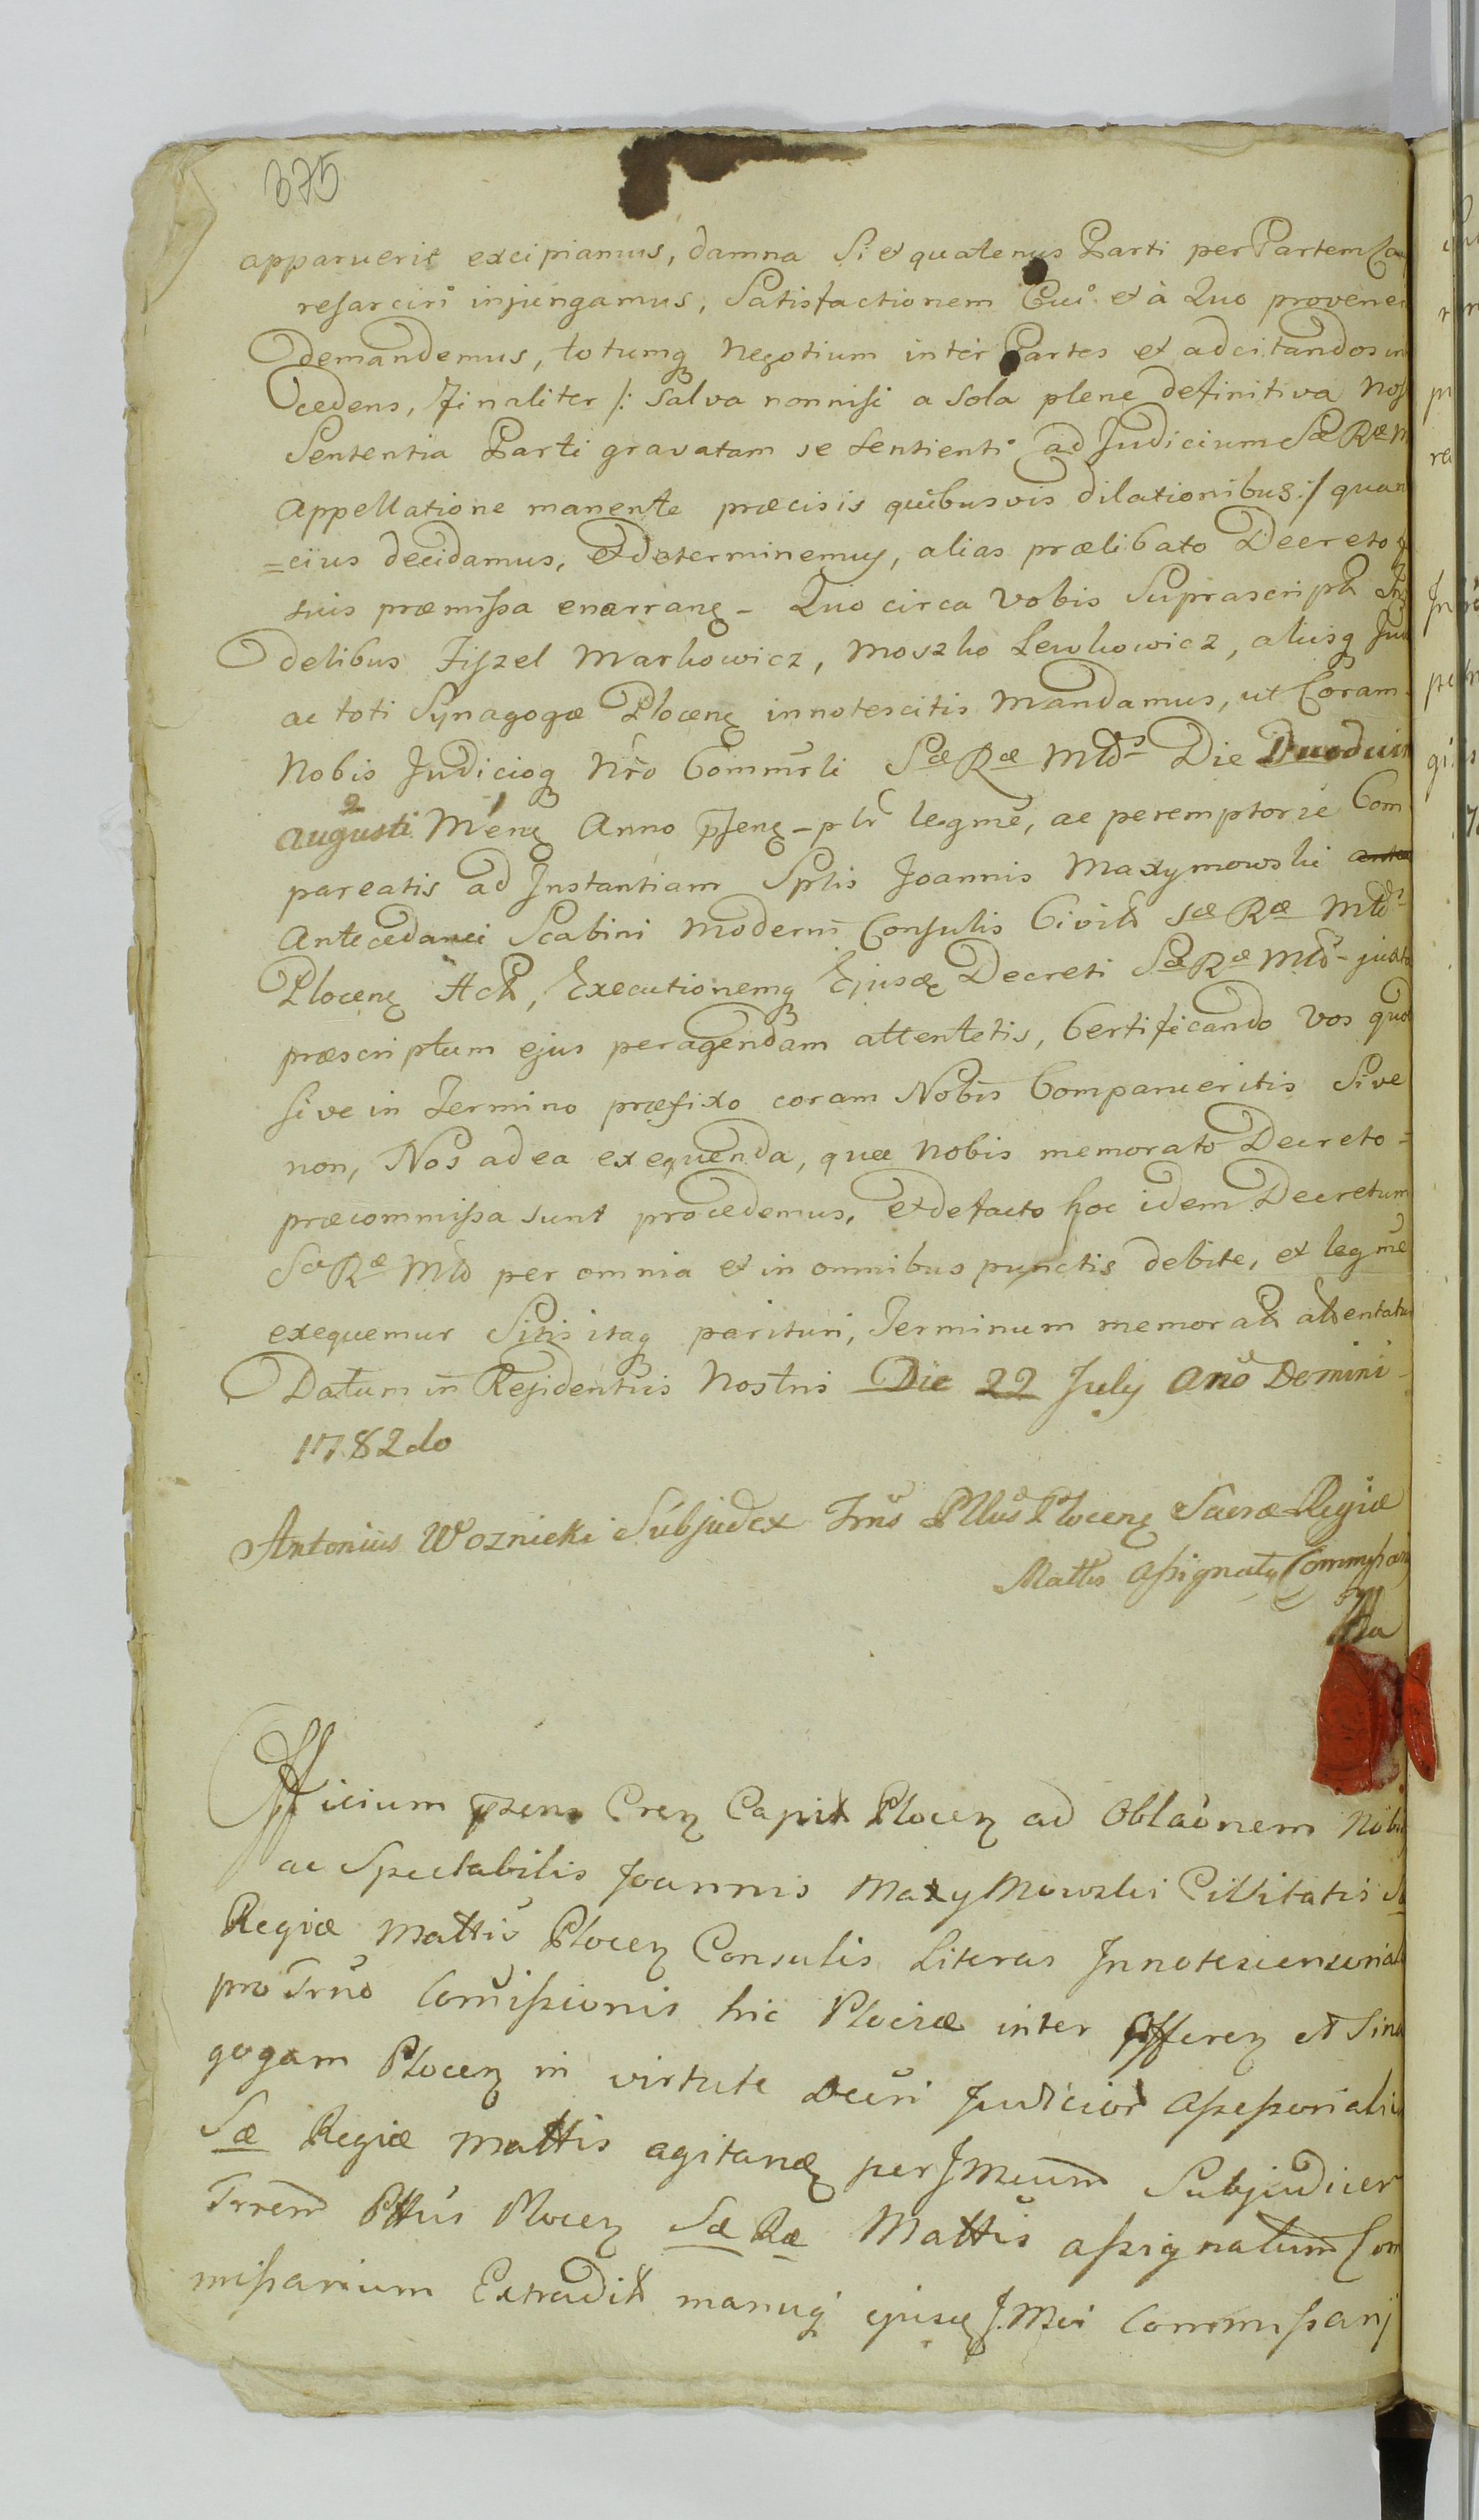 375
apparuerit excipiamus, damna Si et quatenus Parti per Partem
resarciri injungamus, Satisfactionem Cui et à Quo provene
demandemus, totumq Negotium inter Partes et adcitandos in
cedens, finaliter /: Salva nonnisi a sola plene definitiva Nos
Sententia Parti gravatam se sentienti ad Judicium Sæ Ræ M
appellatione manente præcisis quibusvis dilationibus :/ quan
=cius decidamus, et determinemus, alias prælibato Decreto
suis præmissa enarrang - Quo circa Vobis Suprascript
delibus Fiszel Markowicz, Moszko Lewkowicz, aliisq Jud
ac toti Synagogæ Plocenς innotescitis Mandamus, ut Coram
Nobis Judicioq Nro Commrli Sæ Ræ Mtts Die Duodui
2
Augusti Menς Anno legme, ac peremptorie Com
pareatis ad Instantiam Splis Joannis Maxymowski
Antecedanei Scabini moderni Consulis Civit Sæ Ræ Mtts
Plocenς Act, Executionemq Ejusdς Decreti Sæ Ræ Mtts juxta
præscriptum ejus peragendam attentetis, Certificando Vos quod
sive in Termino præfixo coram Nobis Comparueritis Sive
non, Nos ad ea exequenda, quæ Nobis memorato Decreto =
præcommissa sunt procedemus, et de facto hoc idem Decretum
Sæ Ræ Mtts per omnia et in omnibus punctis debite, et legme
exequemur Sitis itaq parituri, Terminum memorat attentatu
Datum in Residentiis Nostris Die 22 July Ano Domini
1782do
Antonius Woznicki Subjudex Trrs Plltus Plocenς Sacræ Regiæ
Mattis assignatς Commissari
mp
Officium Crenς Capit Plocenς ad Oblaonem Nobi
ac Spectabilis Joannis Maxymowski Civitatis Sæ
Regiæ Mattis Plocenς Consulis Literas Innotescensional
pro Trno Comissionis hic Plociæ inter Offerenς et Sina
gogam Plocenς in virtute Decri Judicior Assessorialiu
Sæ Regiæ Mattis agitandς per Subjudicem
Trrem Plltus Plocenς Sæ Ræ Mattis assignatum Com
missarium Extradit manuq ejusdς Commissarj